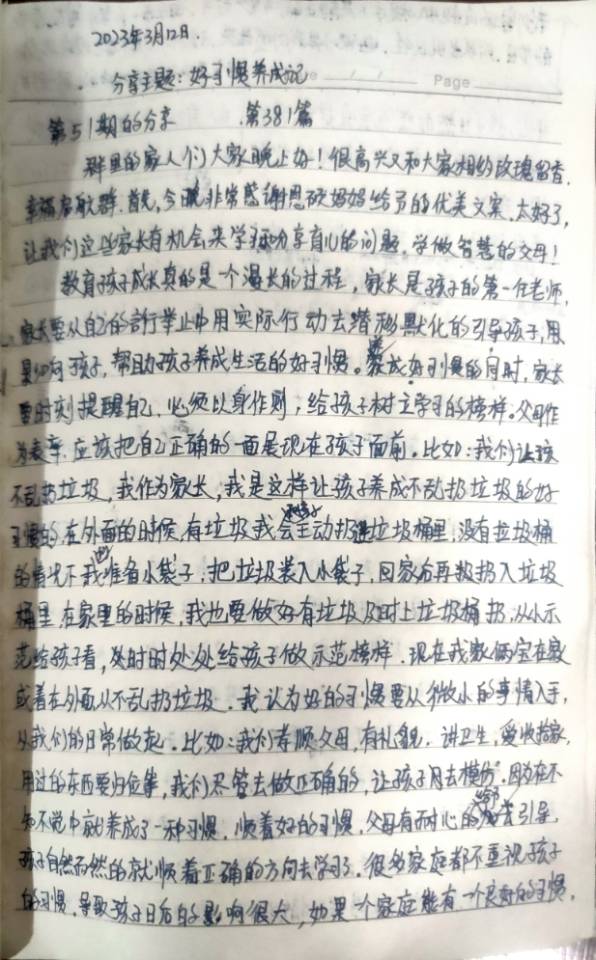 2023年3月12日.
Page
分享主题：好习惯养成记
第51期的分享 第381篇
群里的家人们大家晚上好！很高兴又和大家相约玫瑰留香.
幸福启航群.首先,今晚非常感谢恩硕妈妈给予的优美文案.太好了,
让我们这些家长有机会来学习和分享育儿的问题,学做智慧的父母！
教育孩子成长真的是一个漫长的过程,家长是孩子的第一任老师,
家长要从自己的言行举止中用实际行动去潜移默化的引导孩子,用
孩子,帮助孩子养成生活的好习惯。养成好习惯的同时,家长
要时刻提醒自己,必须以身作则,给孩子树立学习的榜样。父母作
为表率,应该把自己正确的一面展现在孩子面前。比如：我们让孩
不乱扔垃圾,我作为家长,我是这样让孩子养成不乱扔垃圾的好
习惯的,在外面的时候,有垃圾我会主动扔进垃圾桶里,没有垃圾桶
的情况下我准备小袋子,把垃圾装入小袋子,回家后再扔入垃圾
桶里.在家里的时候,我也要做好有垃圾及时上垃圾桶扔.从小示
范给孩子看,及时时处处给孩子做示范榜样.现在我家俩宝在家
或着在外面从不乱扔垃圾.我认为好的习惯要从微小的事情入手,
从我们的日常做起.比如：我们孝顺父母,有礼貌.讲卫生,爱收拾家,
用过的东西要归位等,我们尽管去做正确的,让孩子用去模仿。因为在不
知不觉中就养成了一种习惯.顺着好的习惯,父母有耐心的引导,
孩子自然而然的就顺着正确的方向去学习了.很多家庭都不重视孩子
的习惯.导致孩子日后的影响很大,如果一个家庭能有一个良好的习惯,